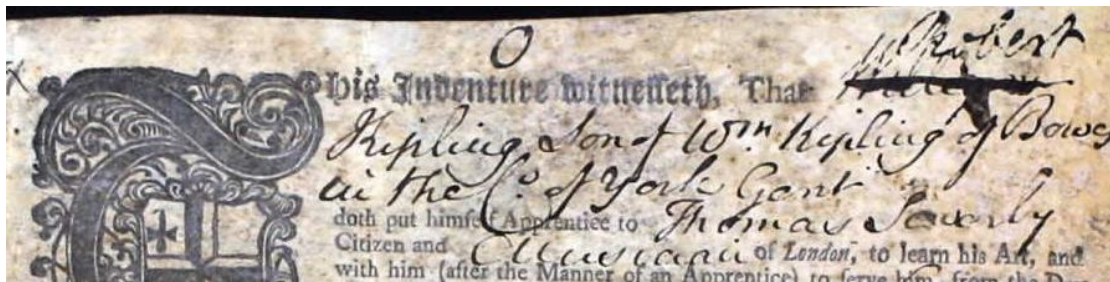 O
Robert
This Indenture witnesseth, That
Kipling Son of Wm. Kipling of Bowes
in the Co. of York Gent
doth put himself Apprentice to Thomas
Citizen and Musician of London, to learn his Art, and
with him (after the Manner of an Apprentice) to serve him, from the